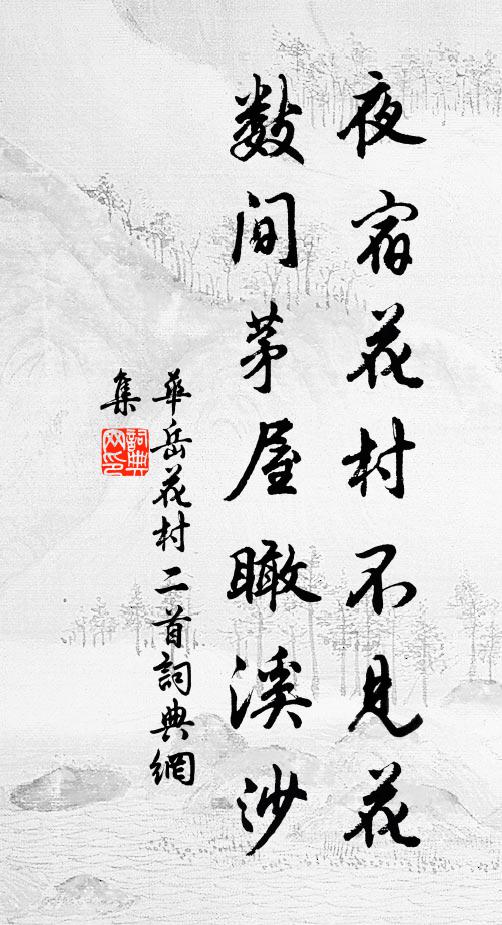 夜宿花村不見花
數間茅屋瞰溪沙
華岳花村二首詞典網
集
詞典網印